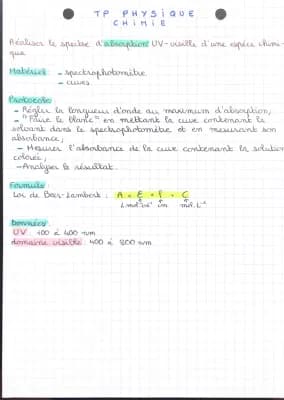 TP PHYSIQUE
CHIMIE
Réaliser le spectre d'absorption UV-visible d'une espèce chimi-
que
Matériel : - spectrophotomètre
- cuves
Protocole :
- Régler la longueur d'onde au maximum d'absorption,
- "Faire le blanc" en mettant la cuve contenant le
solvant dans le spectrophotomètre et en mesurant son
absorbance ;
- Mesurer l'absorbance de la cuve contenant la solution
colorée ;
- Analyser le résultat.
Formule :
Loi de Beer-Lambert : A = ε × l × C
L.mol⁻¹.cm⁻¹ cm mol.L⁻¹
Données :
UV : 100 à 400 nm
domaine visible : 400 à 800 nm